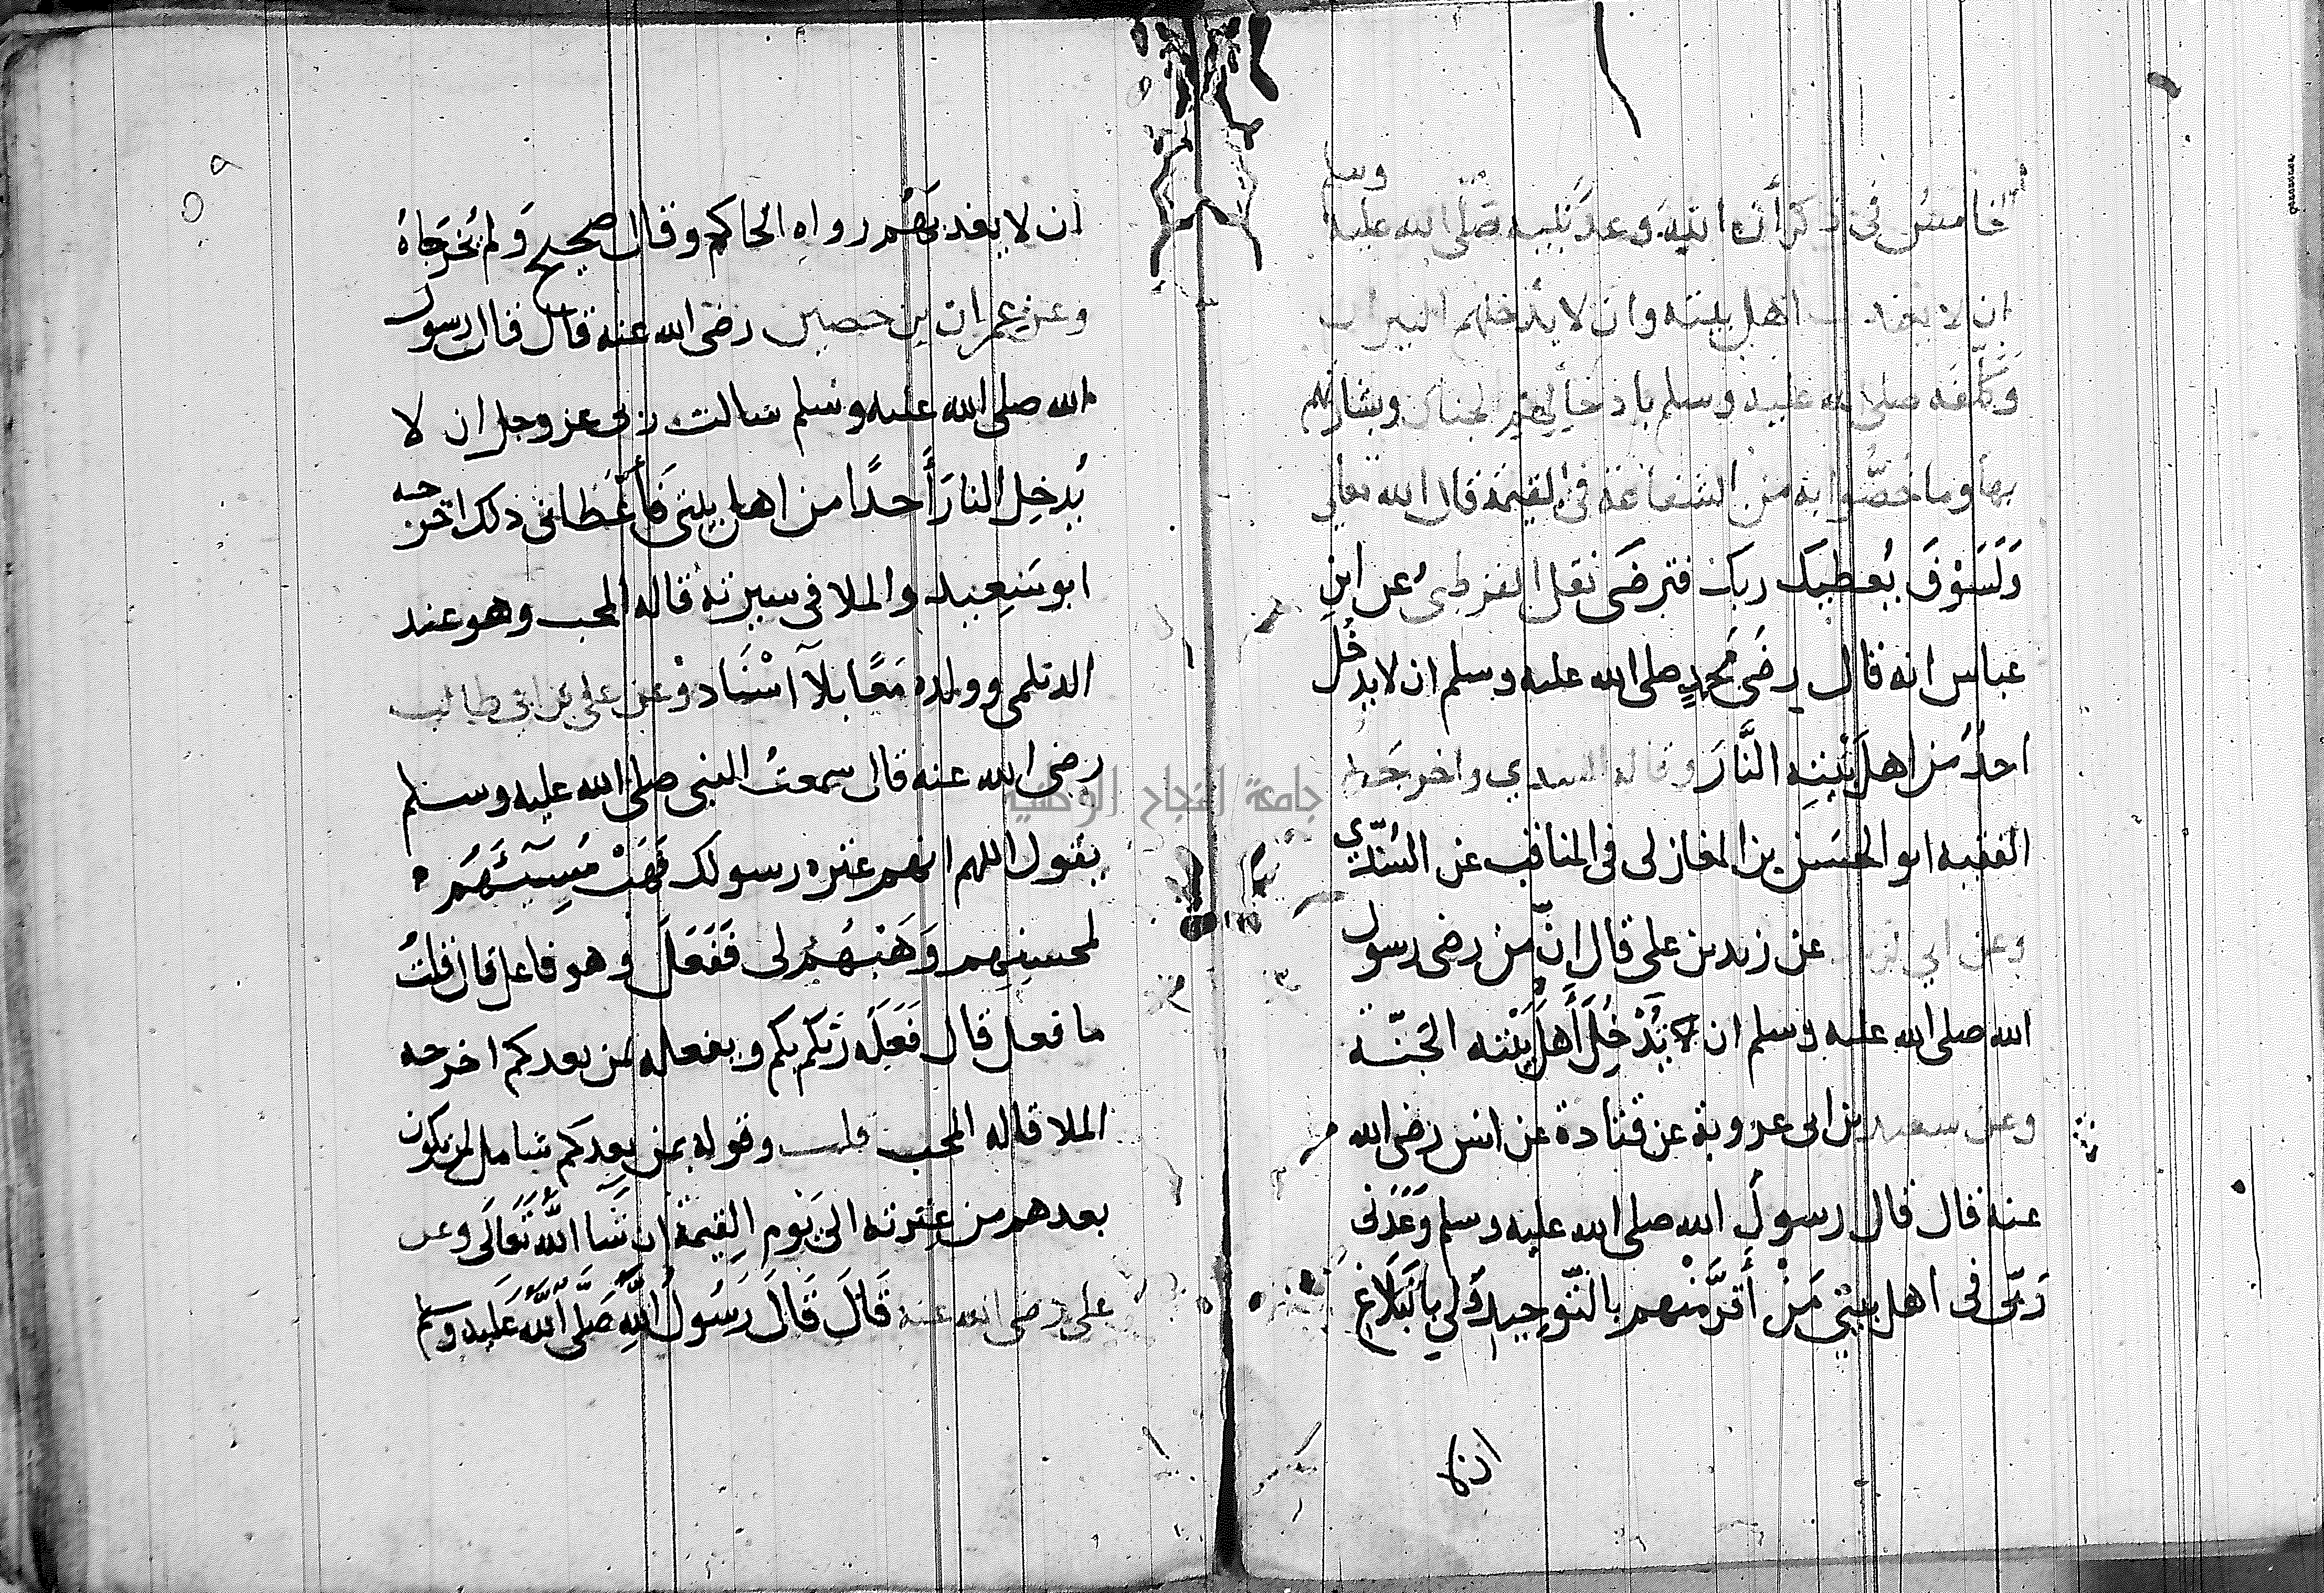 خامس في ذكر أن الله وعد نبيه صلى الله عليه وسلم
ان لا يعذب اهل بيته وان لا يدخلهم النيران
وكلفه صلى الله عليه وسلم بادخالهم الجنان وبشارتهم
بها وما خصوا به من الشفاعة في القيمة قال الله تعالى
وَلَسَوْفَ يُعطيك ربك فترضَى نقل القرطبى عن ابنِ
عباس انه قال رضَى محمدٍ صلى الله عليه وسلم ان لا يدخُل
احدٌ من اهل بَيْتِهِ النَّارَ وقاله السدي واخرجه
الفقيه ابو الحسَن بن المغازلى فى المناقب عن السُّدّيِ
وعن ابي عن زيد بن على قال اِنّ من رضى رسول
الله صلى الله عليه وسلم ان يُدْخِلَ أَهْلَ بَيْته الجنّة
وعن سعيد بن ابى عروبة عن قتادة عن انس رضى الله
عنه قال قال رسول الله صلى الله عليه وسلم وَعَدَنى
رَبّى فى اهل بيتى مَنْ أَقَرَّ منهم بالتّوحِيدِ وَلي بِالْبَلَاغِ
ان لا
٥٩
ان لا يعذبَهُم رواه الحاكم وقال صحيح وَلم يُخرجَاهُ
وعن عمران بن حصين رضى الله عنه قال قال رسول
الله صلى الله عليه وسلم سالت ربى عز وجل ان لا
يُدخِل النارَ أَحدًا من اهل بيتى فَأَعْطانى ذلك اخرجه
ابو سَعِيد والملا فى سيرته قاله المحب وهو عند
الديلمى وولده مَعًا بلآ اسْنَاد وعن على بن ابى طالب
رضى الله عنه قال سمعتُ النبى صلى الله عليه وسلم
يقول اللهم انهم عتره رسولك فَهَبْ مُسِيئَهُم
لمحسنِهِم وَهَبْهُم لى فَفَعَلَ وهو فاعل قال قلتُ
ما فعل قال فَعَلَه رَبّكم بكم ويفعله بمن بعدكم اخرجه
الملا قاله المحب قلت وقوله بمن بعدكم شامل لمن يكون
بعدهم من عِترته الى يَوْم القِيمة ان شَا اللهُ تَعَالَى وعن
على رضى الله عنه قَالَ قَالَ رَسُولُ اللهِ صَلَّى اللهُ عَلَيه وسلم
جامعة النجاح الوطنية